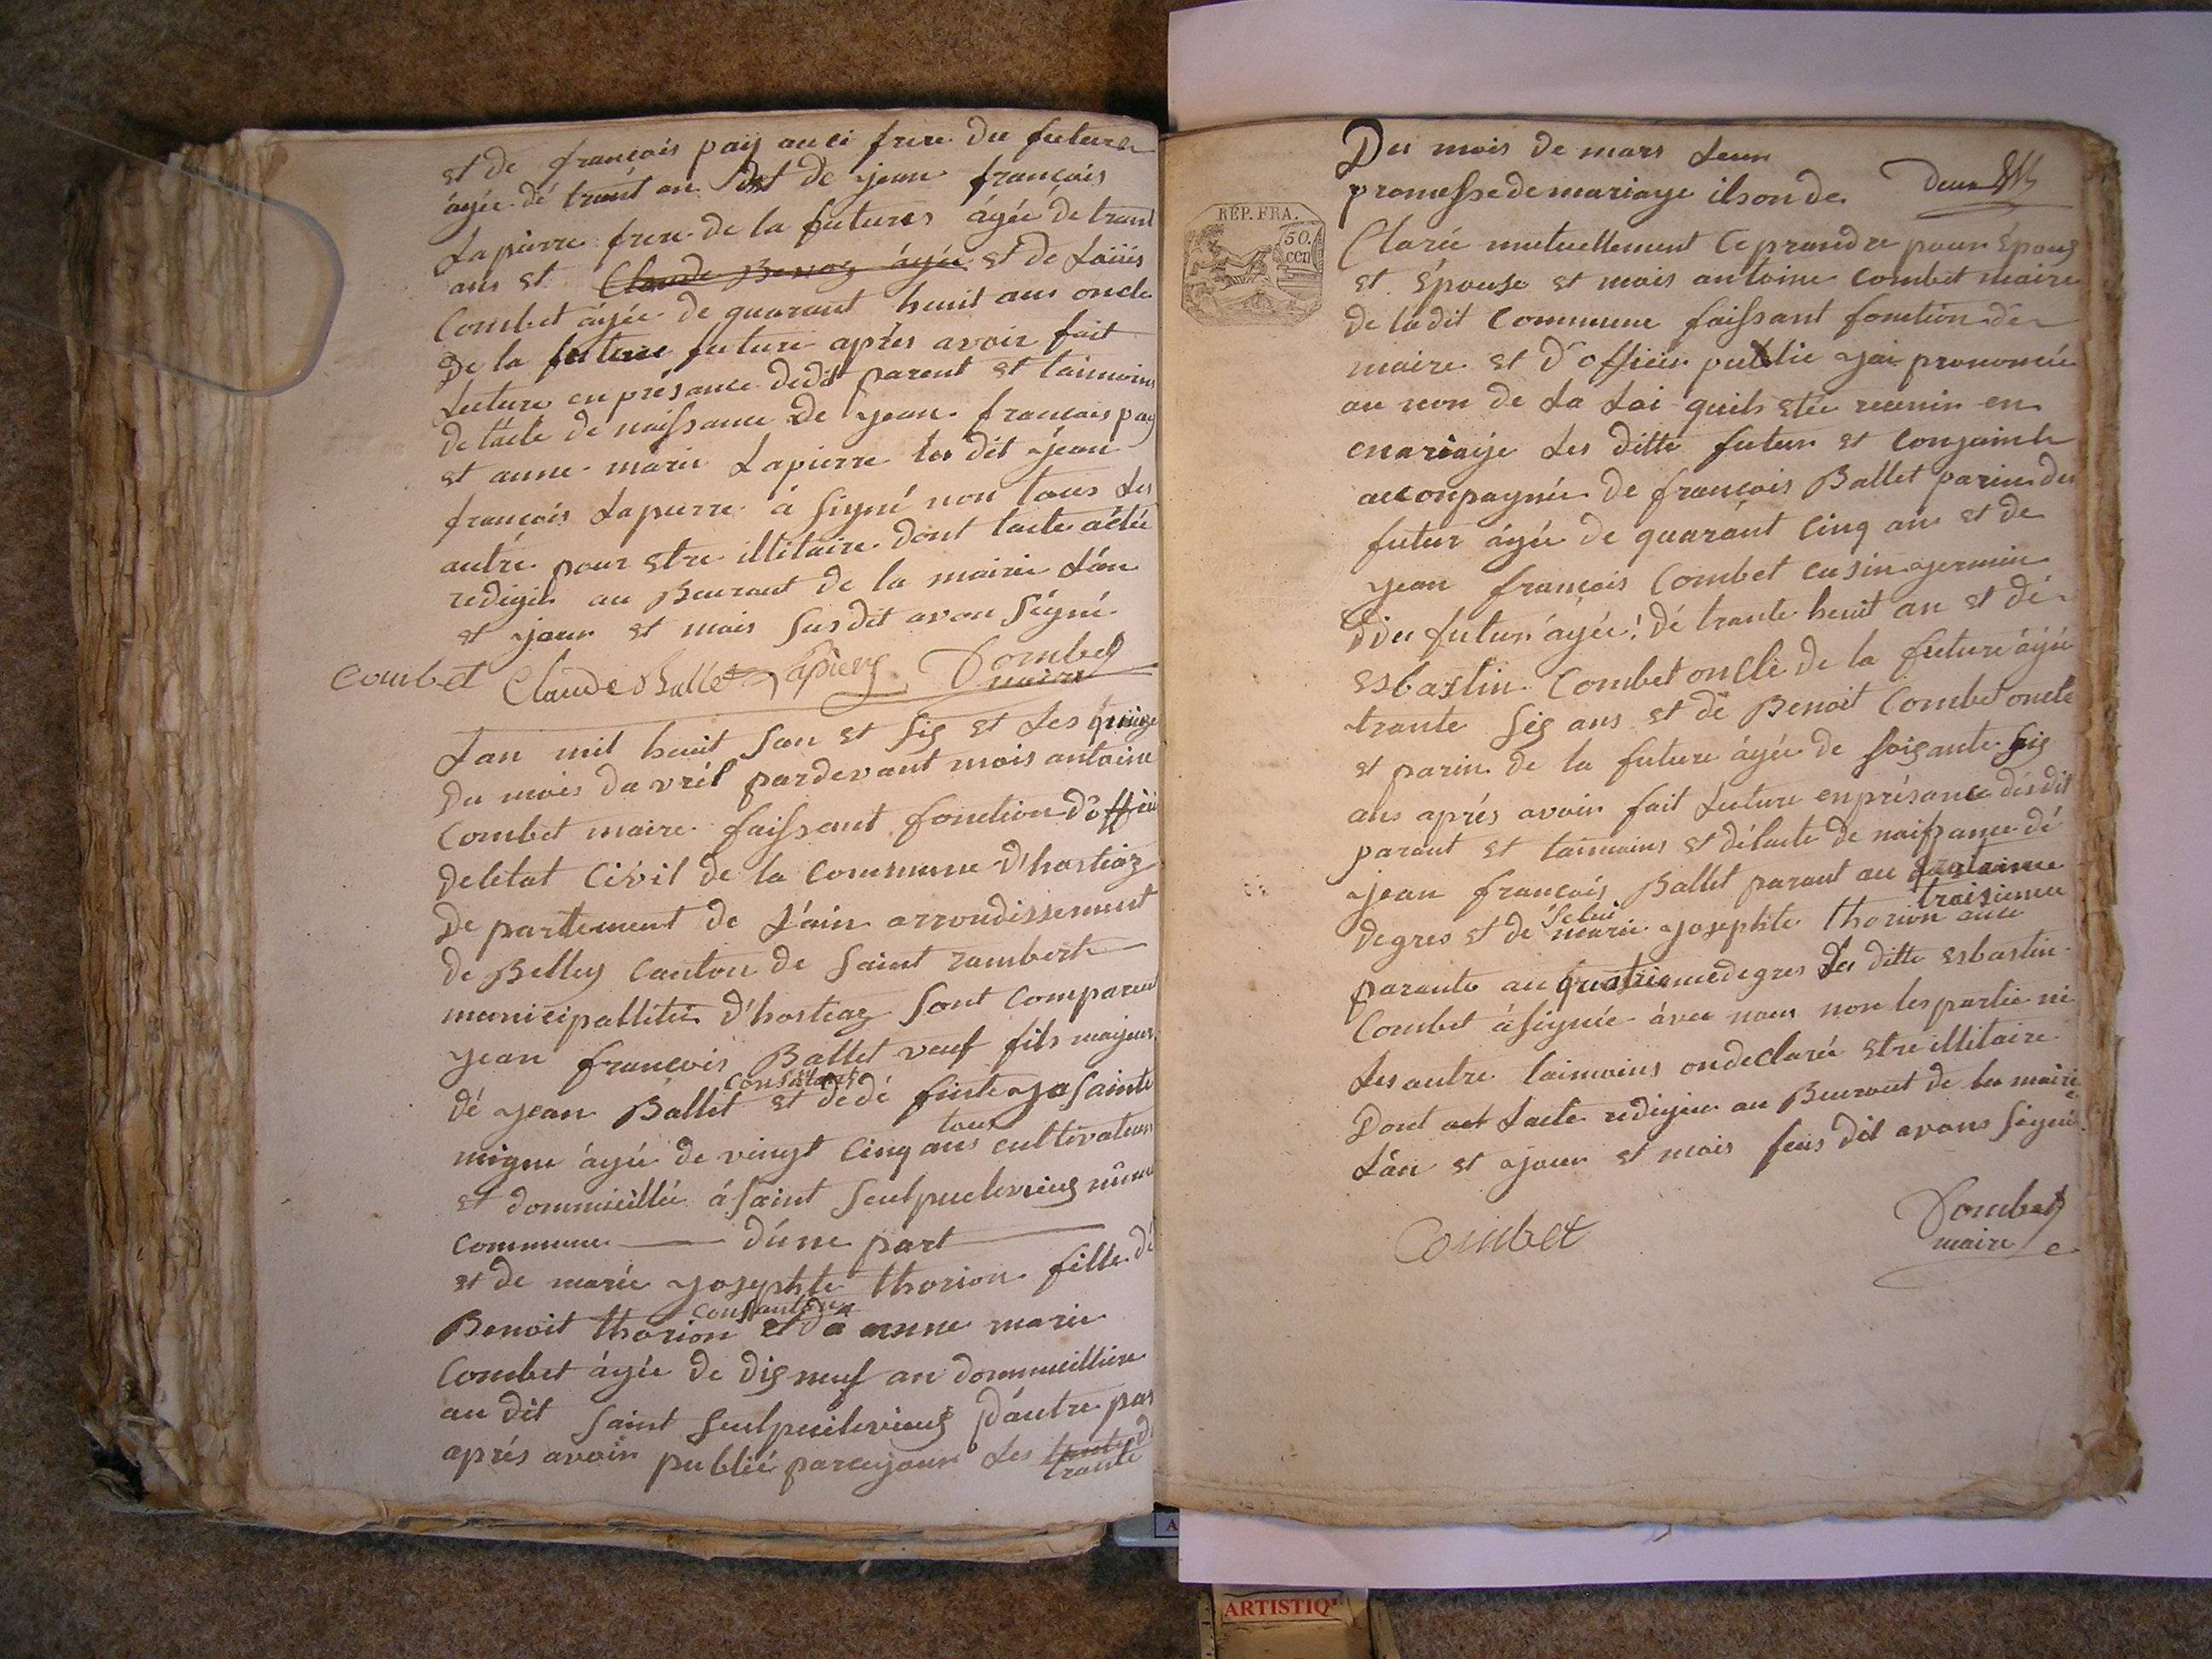 et de françois pay auci frere du future
âgée dé trant an et de jean françois
Lapierre frere de la futures âgée de trant
ans et Claude âgée et de Loüis
Combet âgée de quarant heuit ans oncle
De la future future aprés avoir fait
Lecture en présance dedit parent et taimoins
de lacte de naissance de jean francois pay
et anne marie Lapierre les dit jean
françois Lapierre à signé non tous les
autre pour etre illitaire dont lacte a été
redigér au Beuraut de la mairie Lán
et jour et mois sus dit avon signé
Combet Claude Ballet Lapiere Combet
maire
Lan mil heuit san et sis et les quinze
Du mois davril pardevant mois antoine
Combet maire faissant fonction d'officié
deletat Civil de la Commune d'hostiaz
De partement de L'ain arrondissement
de Belley Canton de Saint rambert
municipallitée d'hostiaz sont Compareut
jean francois Ballet veuf fils majeur
consatant
dé jean Ballet et dedé finte josainte
tous
migne âgée de vingt Cinq ans cultivateur
et dommicillée á saint Seulpuclevieus mume
Commune d'une part
et de marie josephte thorion fille dé
consantdun
Benoit thorion et de anne marie
Combet âgée de dis neuf an dommicilliere
au dit Saint Seulpuilevieus d'autre par
aprés avoir publié parcejour les
trante
Du mois de mars Leur
promesse de mariage ilsonde deux
REP. FRA.
50.
cen
Clarée mutuellement Ceprandre pour Epous
et Épouse et mois antoine Combet maire
de ladit Commune faissant fonction de
maire et d'officier publie jai prononcée
au non de La Loi quils etée reunir en
mariaije Les ditte futur et Conjainte
acconpagnée de françois Ballet parin du
futur âgée de quarant Cinq an et de
jean françois Combet cusin germin
Du futur âgée dé trante heuit an et dé
esbastin Combet oncle de la future âgée
trante sis ans et de Benoit Combet oncle
et parin de la future âgée de soisante sis
ans aprés avoir fait Lecture enprésance desdit
parant et taimoins et délacte de naissance dé
jean francois Ballet parant au quataime
traisieme
selui
degres et de marie josephte thorion auci
parante au quatrieme degres Les ditte esbastin
Combet à signée ávec nous non les partie ni
Les autre taimoins ondeclarée etre illitaire
Dont act Lacte redigée au Beuraut de la mairie
L'án et jour et mois sus dit avons signé
Combet Combet
maire
ARTISTIQ